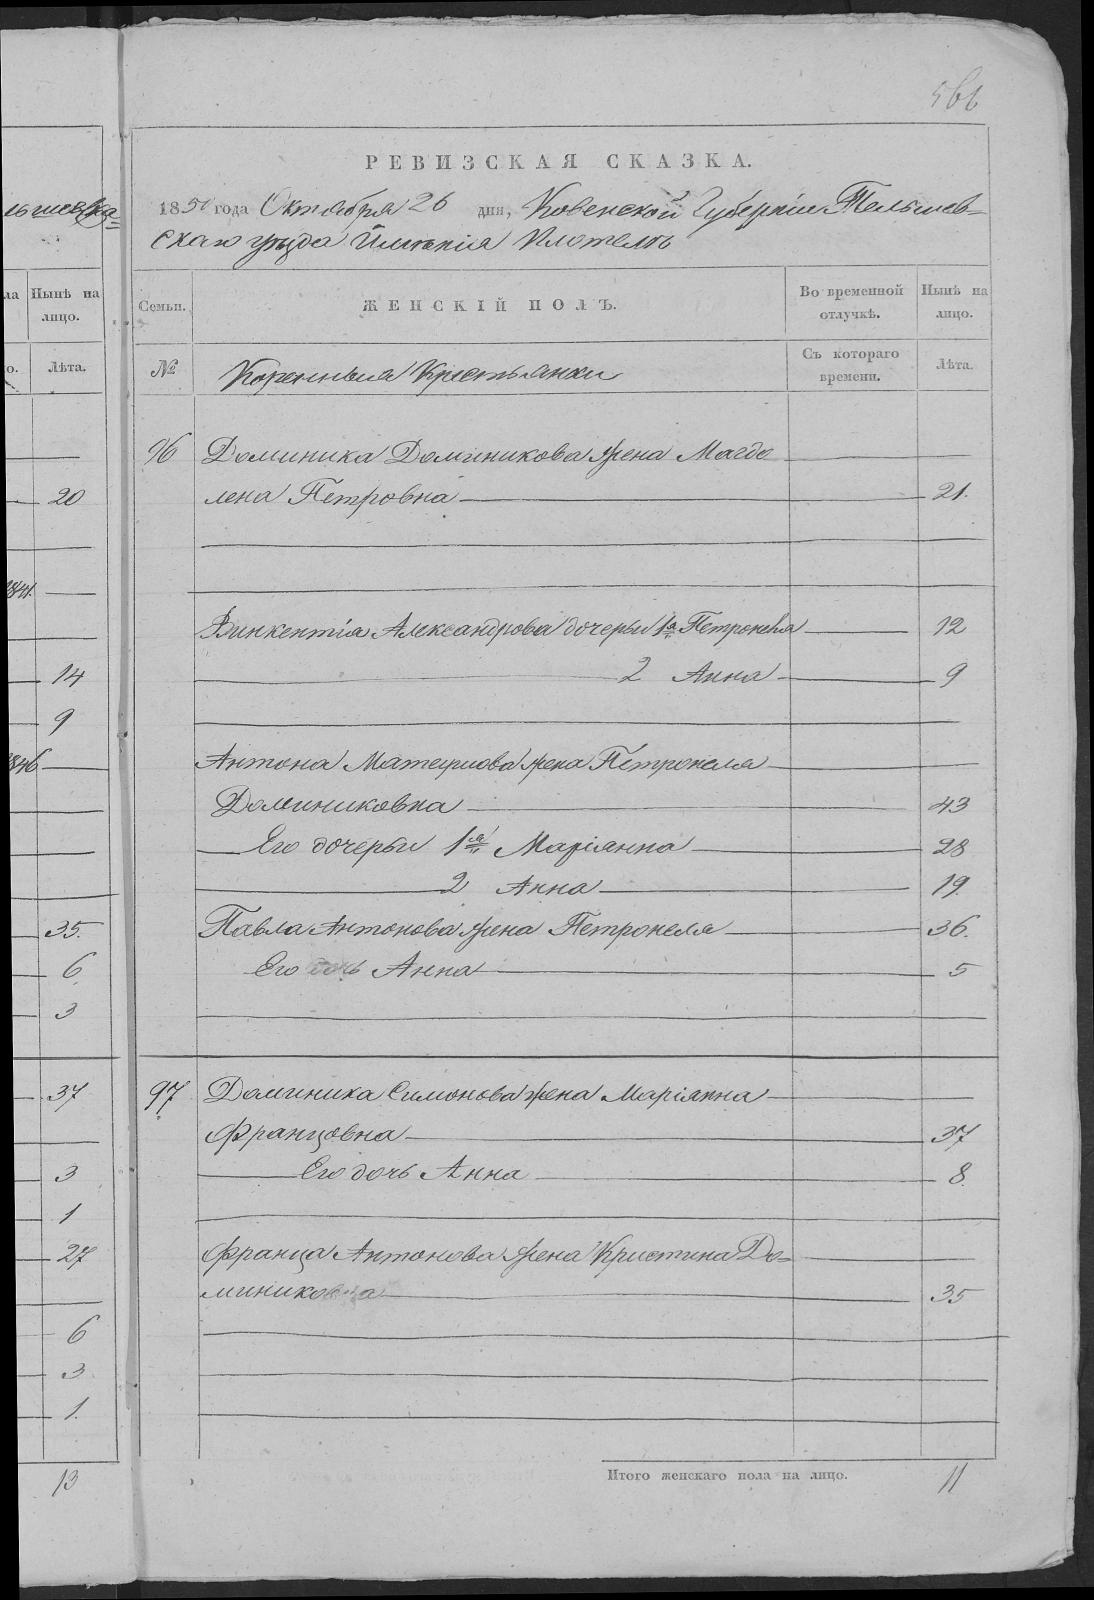 566
РЕВИЗСКАЯ СКАЗКА.
1850 года Октября 26 дня, Ковенской Губерніи Тельшев-
скаго уѣзда Имѣнія Плотель
Семьи.
ЖЕНСКІЙ ПОЛЪ.
Во временной отлучкѣ.
Нынѣ на лицо.
№
Коренныя Крестьянки
Съ котораго времени.
Лѣта.
96 Доминика Доминикова жена Магда
лена Петровна 21.
Винкентія Александрова дочери 1я Петронеля 12
2 Анна 9
Антона Матеушова жена Петронеля
Доминиковна 43
Его дочери 1я Маріянна 28
2 Анна 19.
Павла Антонова жена Петронеля 36.
Его дочь Анна 5
97 Доминика Симонова жена Маріянна
Францовна 37
Его дочь Анна 8.
Франца Антонова жена Кристина До-
миниковна 35
Итого женскаго пола на лицо. 11
Нынѣ на лицо.
Лѣта.
20
1841.
14
9
1846
35.
6
3
37
3
1
27
6
3
1.
13